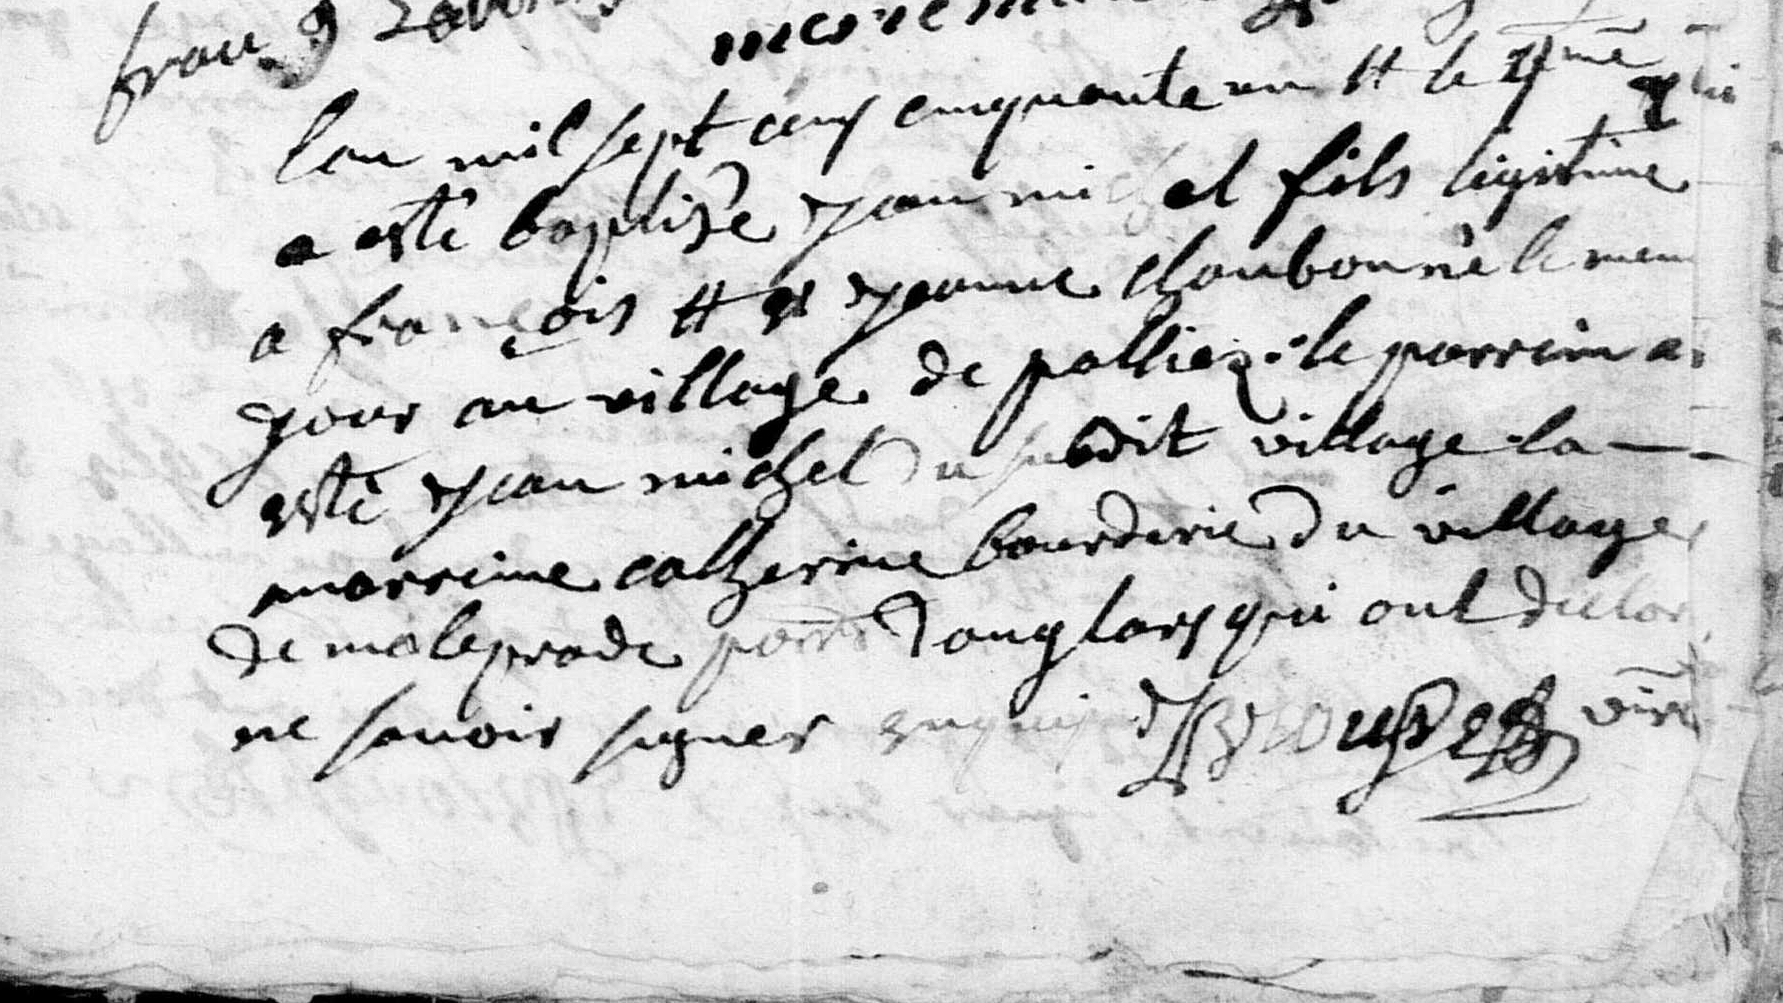 lan mil sept cens cinquante un et le 4me
a esté baptisé jean michel fils legitime
a françois et et jeanne chaubonné le mem
jour au village de palliez. le parrin a
esté jean michel du susdit village la
marrine catherine bourderie du village
de maleprade parr d'anglars qui ont declar
ne savoir signer